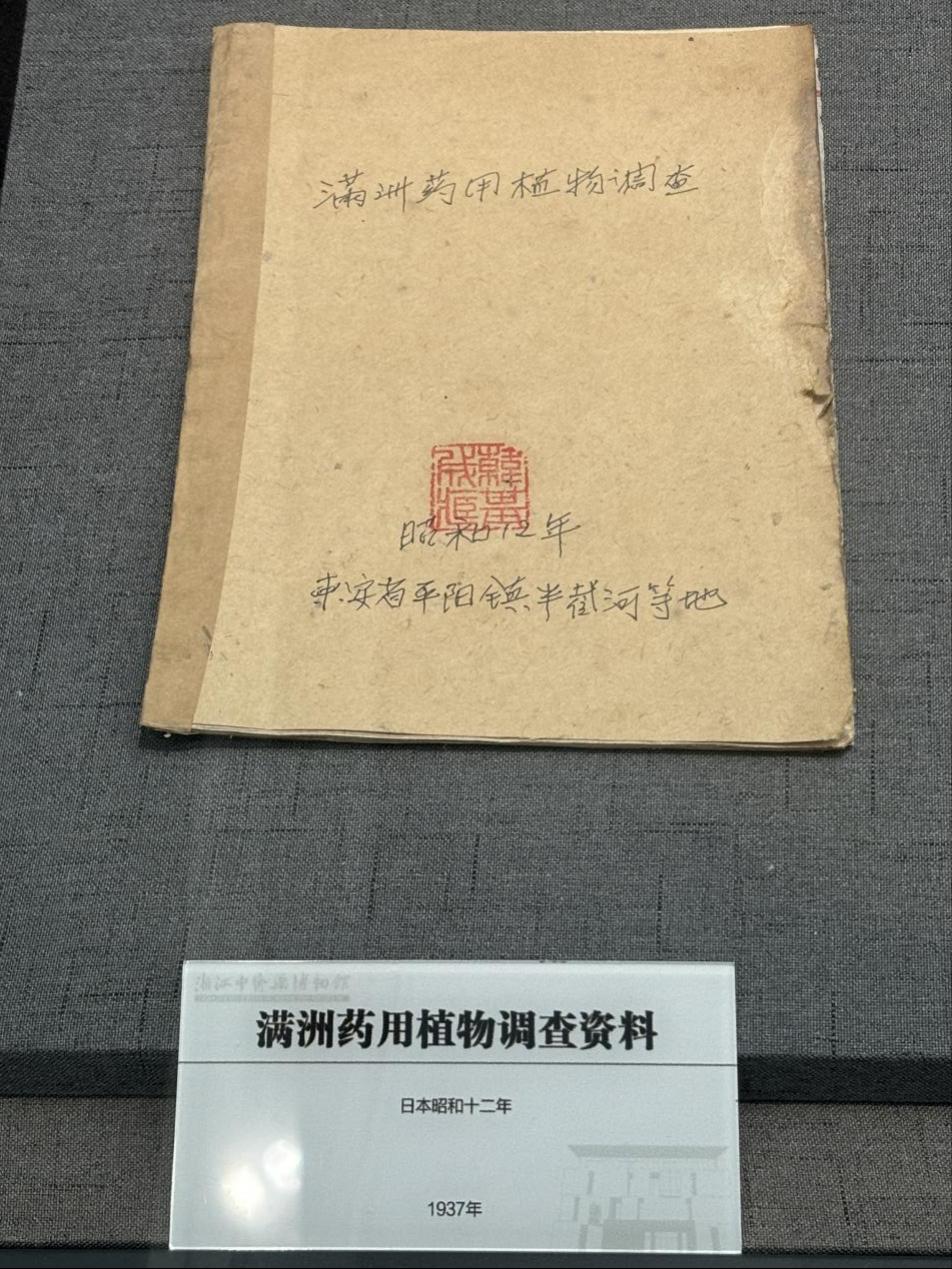 满洲药用植物调查
昭和12年
东安省平阳镇半截河等地
浙江中医药博物馆
满洲药用植物调查资料
日本昭和十二年
1937年